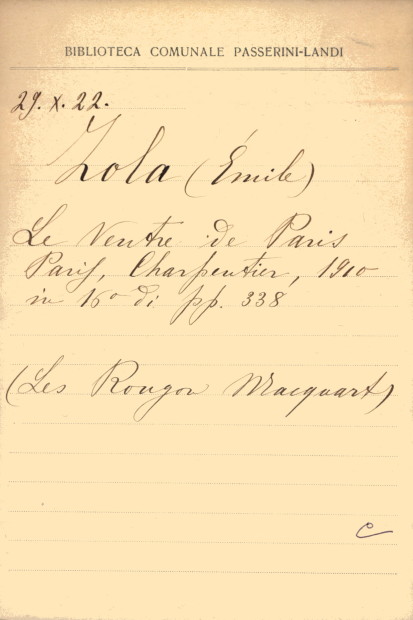 BIBLIOTECA COMUNALE PASSERINI-LANDI
29. X. 22.
Zola (Émile)
Le Ventre de Paris
Paris, Charpentier, 1910
in 16º di pp. 338
(Les Rougon Macquart)
C